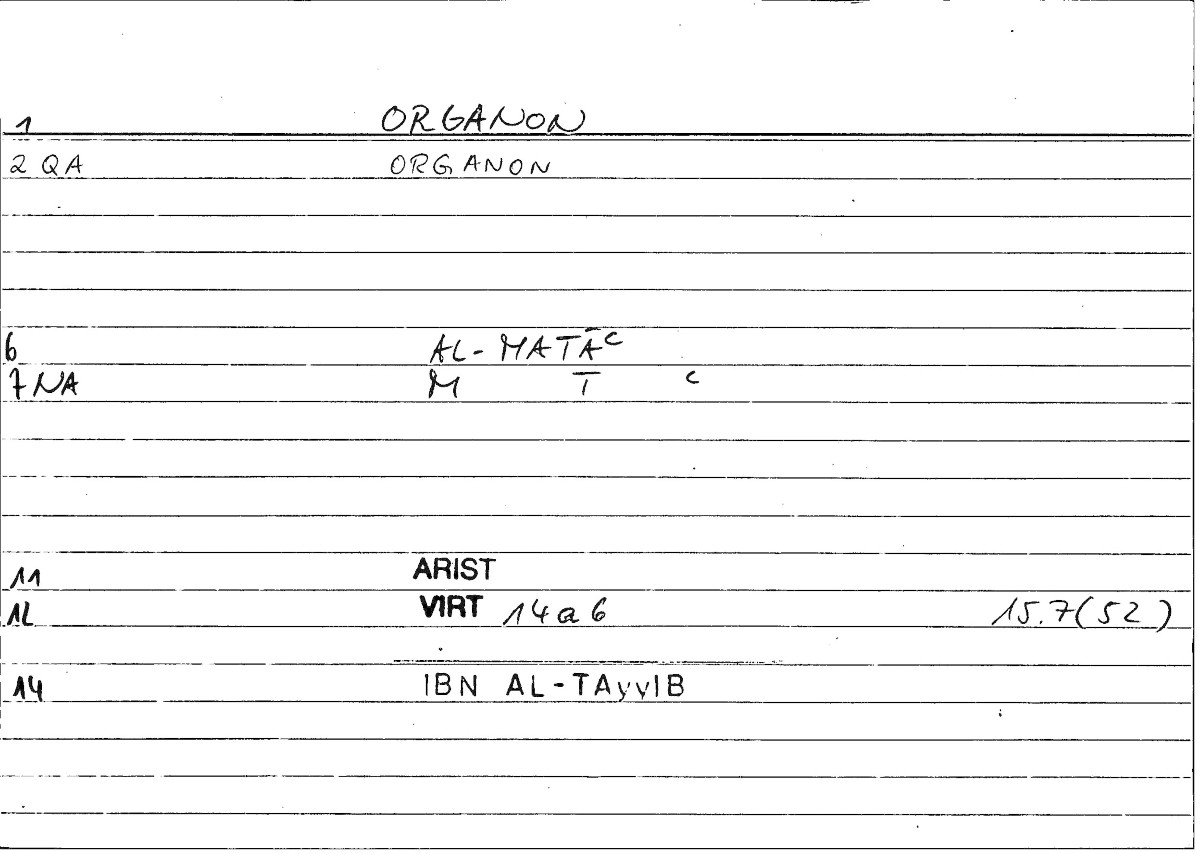 1 ORGANON
2 QA ORGANON
6 AL-MATĀᶜ
7 NA M T ᶜ
11 ARIST
12 VIRT 14a6 15.7(52)
14 IBN AL-TAyyIB